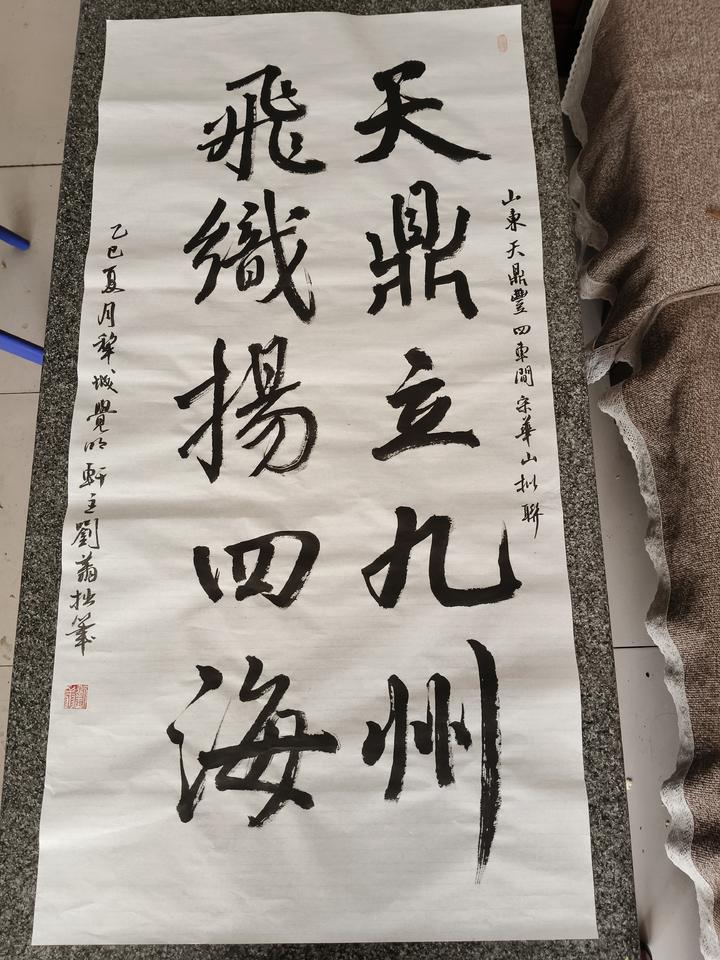 山東天鼎豐四車間宋華山拟聯
天鼎立九州
飛織揚四海
乙巳夏月犂城覺明軒主劉翦拙筆